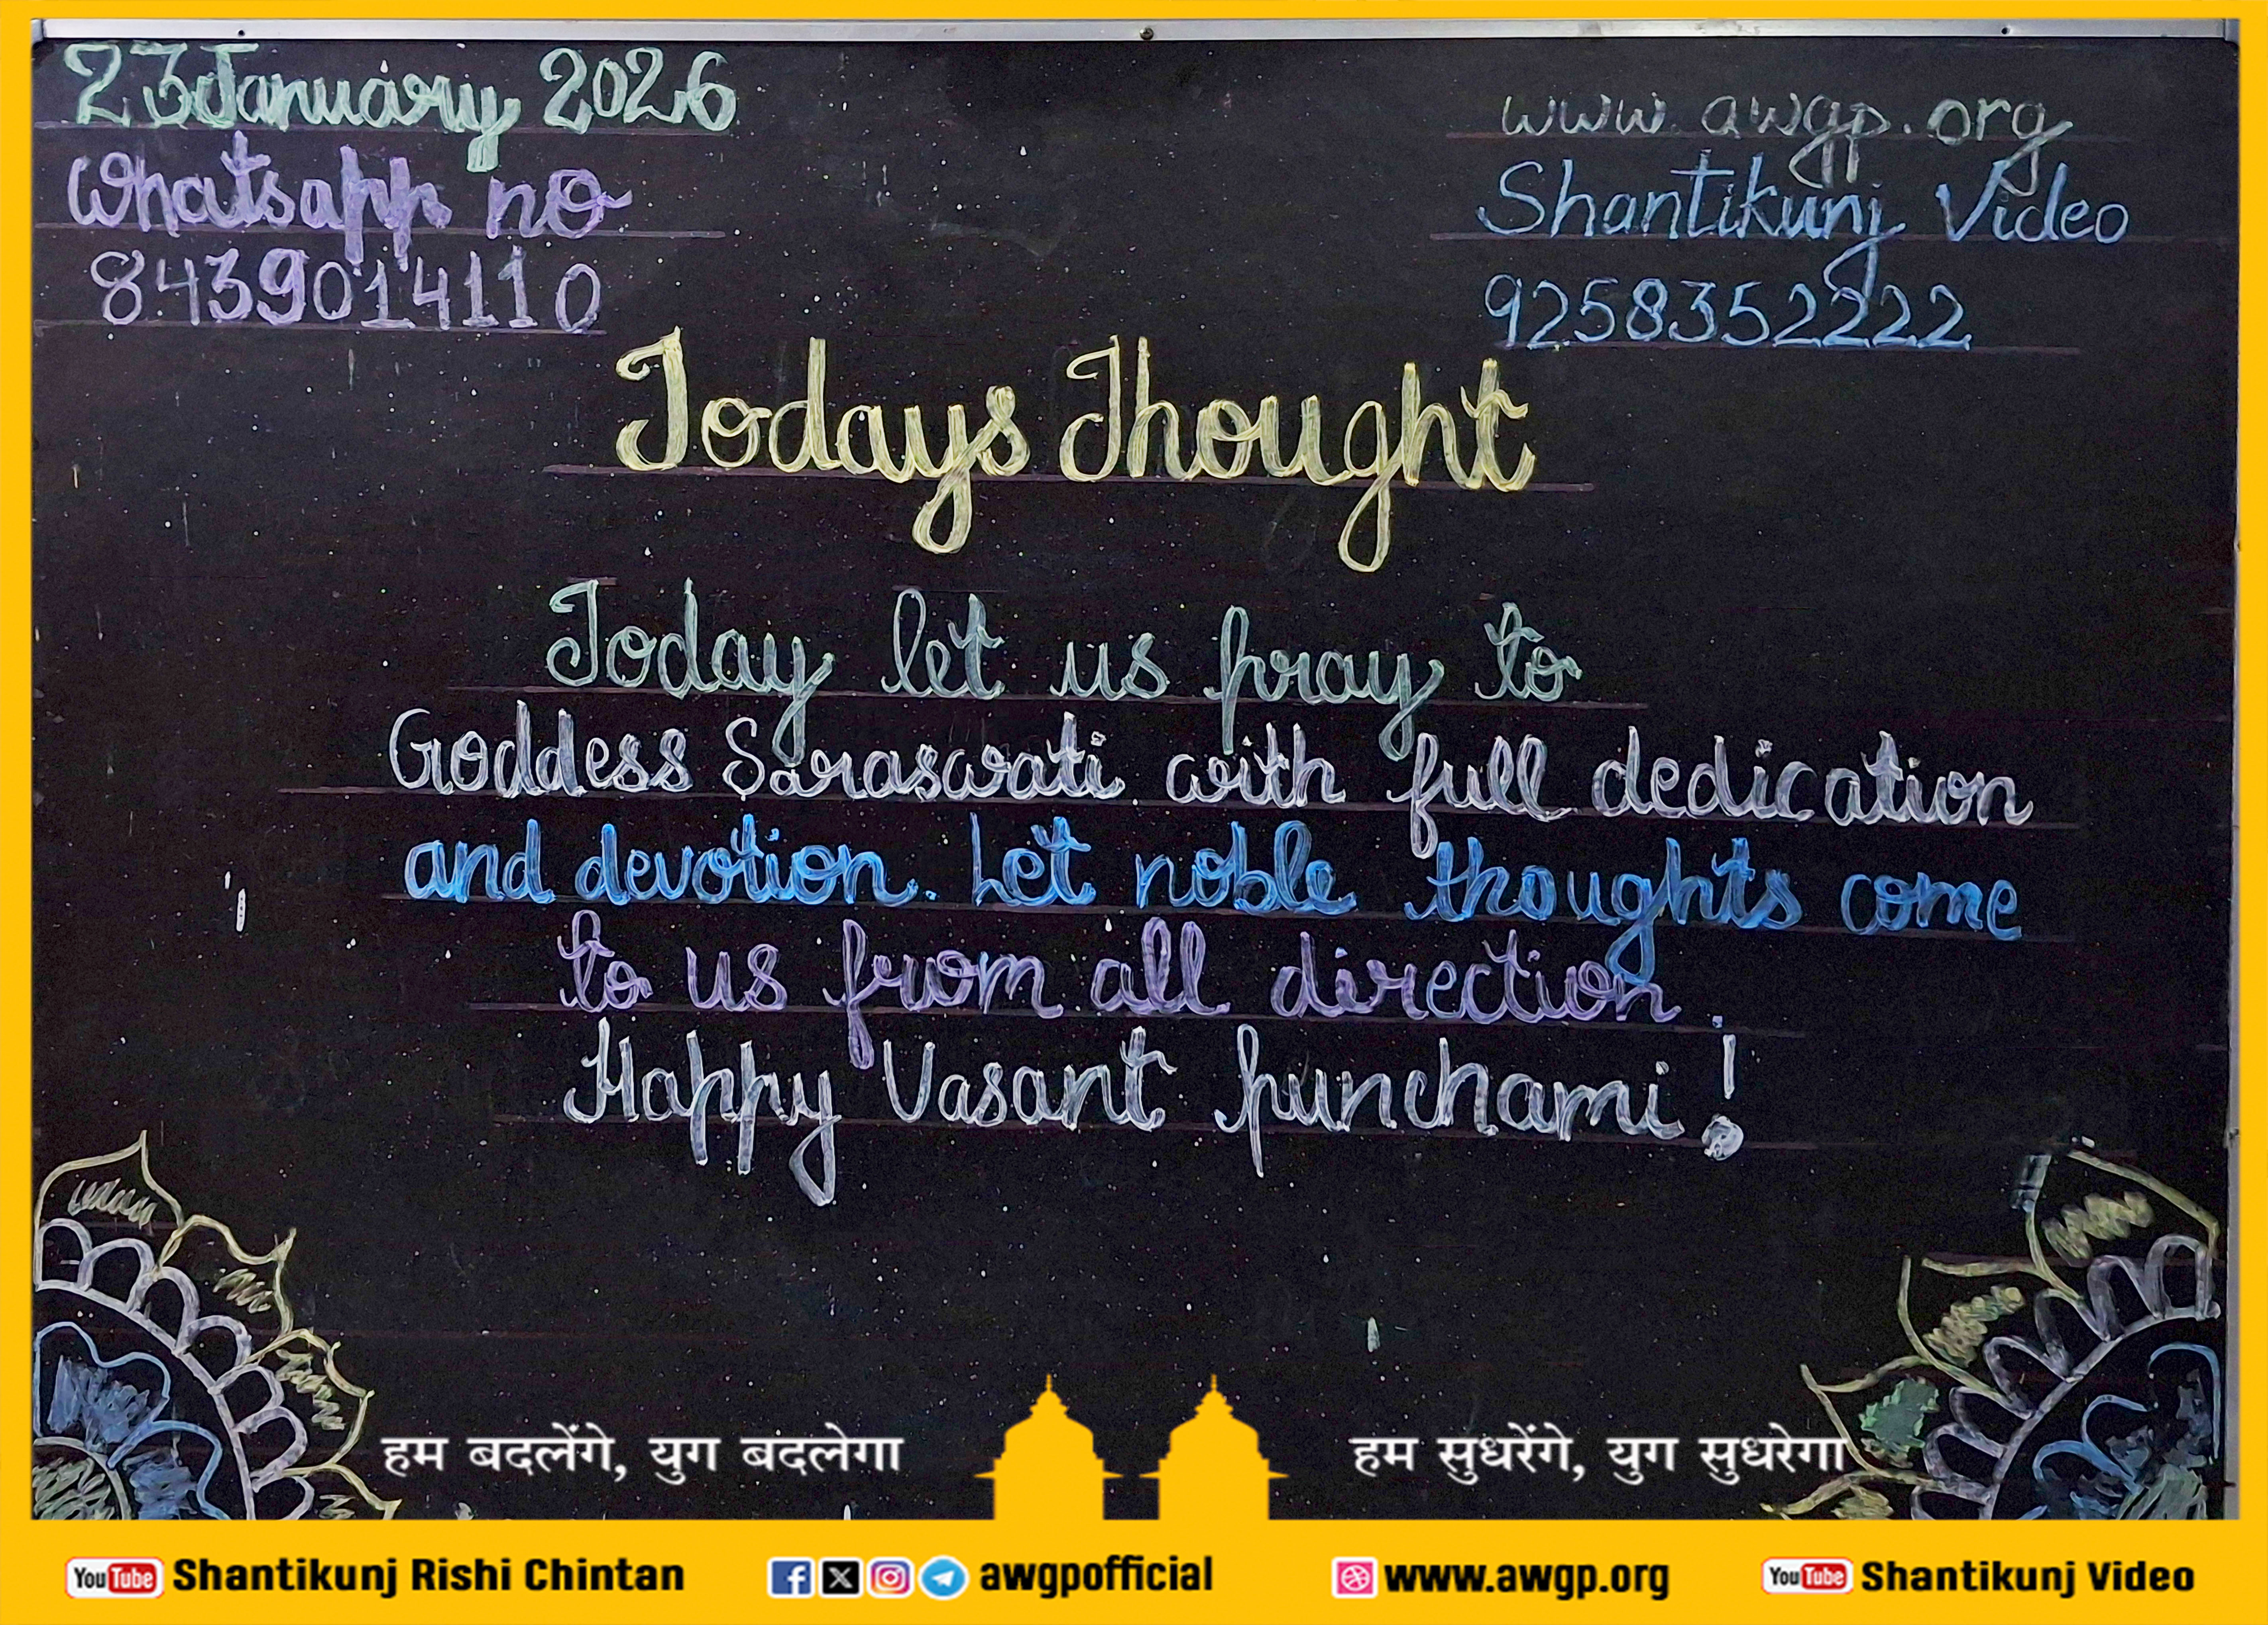 23 January 2026
Whatsapp no
8439014110
www.awgp.org
Shantikunj Video
9258352222
Todays Thought
Today let us pray to
Goddess Saraswati with full dedication
and devotion. Let noble thoughts come
to us from all direction.
Happy Vasant punchami!
हम बदलेंगे, युग बदलेगा
हम सुधरेंगे, युग सुधरेगा
YouTube Shantikunj Rishi Chintan
awgpofficial
www.awgp.org
YouTube Shantikunj Video